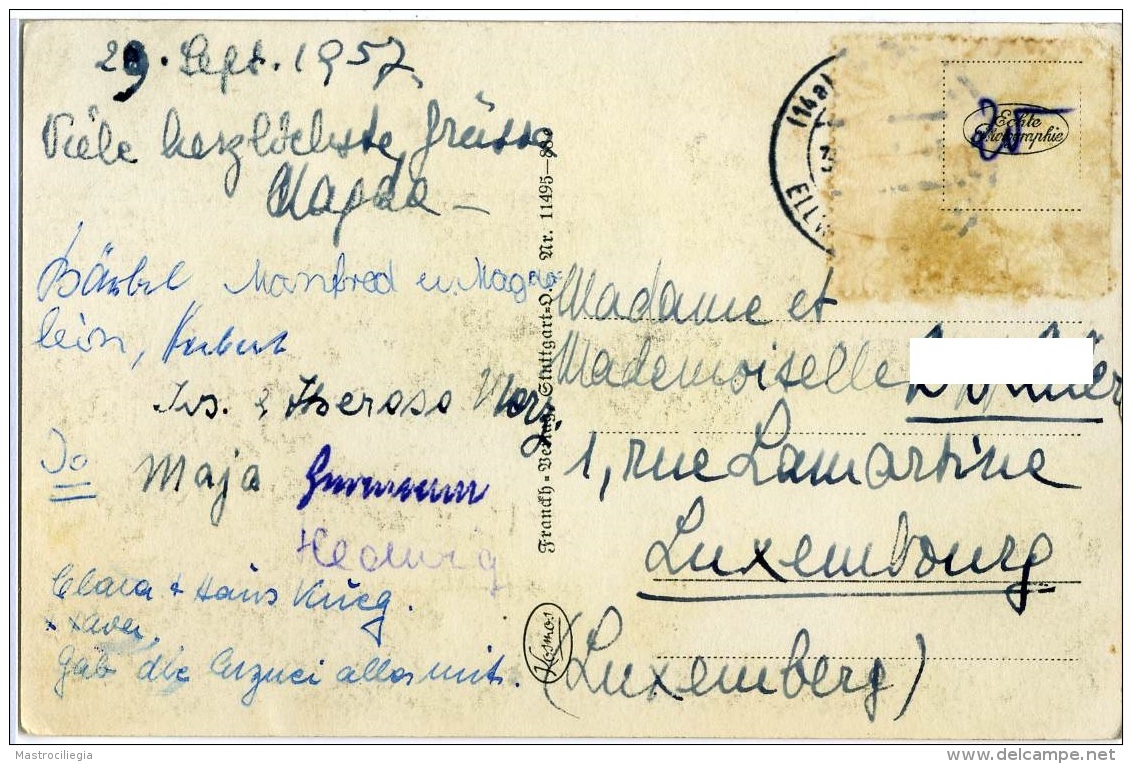 29. Sept. 1957.
Viele herzlichste Grüsse
Magda
Bärbel Manfred u. Magda-
lein, Hubert
Jos. & Theresa
Jo Maja
Hedwig
Clara + Hans Krieg.
+ Xaver,
Gab die Arznei alles mit.
Franckh-Verlag, Stuttgart-O Nr. 11495-
Kosmos
(14a)
ELLW
Echte
Photographie
Madame et
Mademoiselle
1, rue Lamartine
Luxembourg
(Luxemberg)
Mastrociliegia
delcampe.net